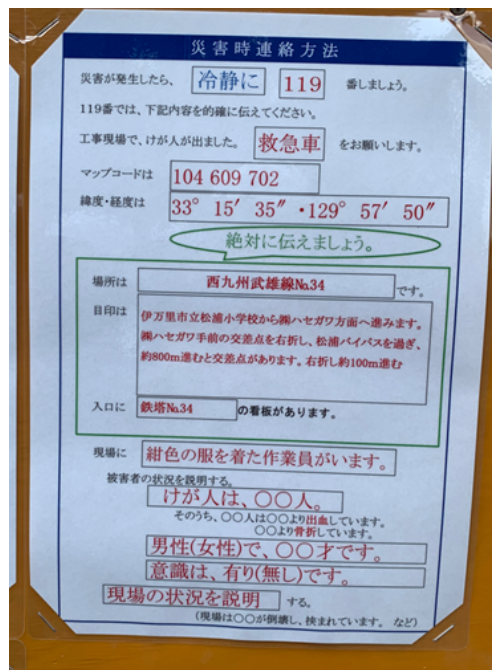 災害時連絡方法
災害が発生したら、 冷静に 119 番しましょう。
119番では、下記内容を的確に伝えてください。
工事現場で、けが人が出ました。 救急車 をお願いします。
マップコードは 104 609 702
緯度・経度は 33° 15′ 35″ ・129° 57′ 50″
絶対に伝えましょう。
場所は 西九州武雄線№34 です。
目印は 伊万里市立松浦小学校から㈱ハセガワ方面へ進みます。
㈱ハセガワ手前の交差点を右折し、松浦バイパスを過ぎ、
約800m進むと交差点があります。右折し約100m進む
入口に 鉄塔№34 の看板があります。
現場に 紺色の服を着た作業員がいます。
被害者の状況を説明する。
けが人は、〇〇人。
そのうち、〇〇人は〇〇より出血しています。
〇〇より骨折しています。
男性(女性)で、〇〇才です。
意識は、有り(無し)です。
現場の状況を説明 する。
(現場は〇〇が倒壊し、挟まれています。 など)